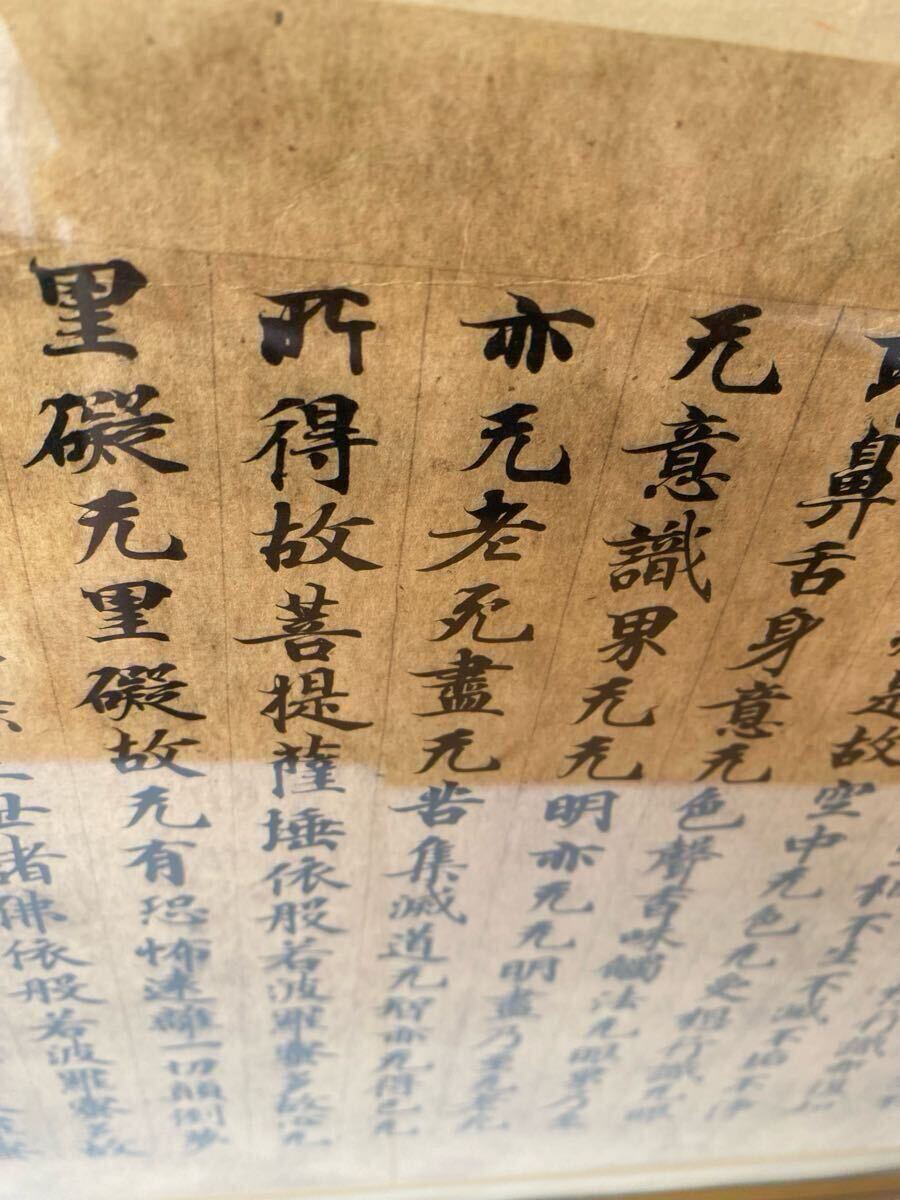 行識亦復如
相不生不滅不垢不淨
是故空中无色无受想行識无眼
鼻舌身意无色聲香味觸法无眼界乃至
无意識界无无明亦无无明盡乃至无老
亦无老死盡无苦集滅道无智亦无得已无
所得故菩提薩埵依般若波羅蜜多故心无
罣礙无罣礙故无有恐怖遠離一切顛倒夢
三世諸佛依般若波羅蜜多故